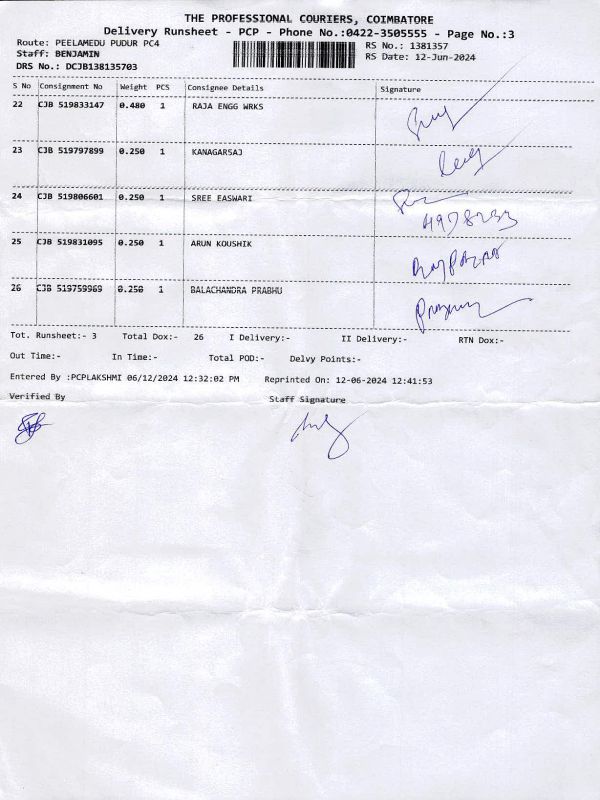 THE PROFESSIONAL COURIERS, COIMBATORE
Delivery Runsheet - PCP - Phone No.:0422-3505555 - Page No.:3
Route: PEELAMEDU PUDUR PC4
RS No.: 1381357
Staff: BENJAMIN
RS Date: 12-Jun-2024
DRS No.: DCJB138135703
S No Consignment No Weight PCS Consignee Details Signature
22 CJB 519833147 0.480 1 RAJA ENGG WRKS
23 CJB 519797899 0.250 1 KANAGARSAJ
24 CJB 519806601 0.250 1 SREE EASWARI
25 CJB 519831095 0.250 1 ARUN KOUSHIK
26 CJB 519759969 0.250 1 BALACHANDRA PRABHU
Tot. Runsheet:- 3 Total Dox:- 26 I Delivery:- II Delivery:- RTN Dox:-
Out Time:- In Time:- Total POD:- Delvy Points:-
Entered By :PCPLAKSHMI 06/12/2024 12:32:02 PM Reprinted On: 12-06-2024 12:41:53
Verified By Staff Signature